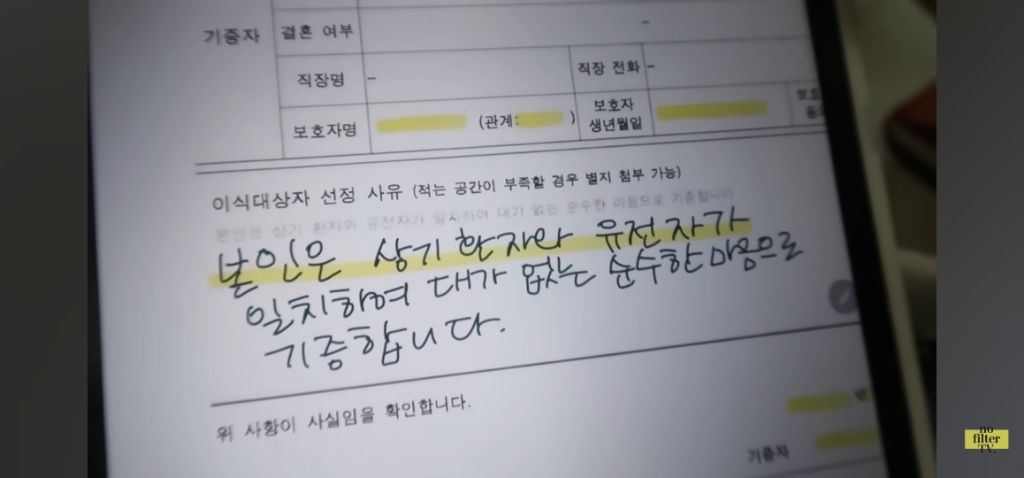 기증자
결혼 여부
-
직장명
-
직장 전화
-
보호자명
(관계: )
보호자
생년월일
이식대상자 선정 사유 (적는 공간이 부족할 경우 별지 첨부 가능)
본인은 상기 환자와 유전자가 일치하며 대가 없는 순수한 마음으로 기증합니다
본인은 상기 환자와 유전자가
일치하며 대가 없는 순수한 마음으로
기증합니다.
위 사항이 사실임을 확인합니다.
기증자
no
filter
TV.